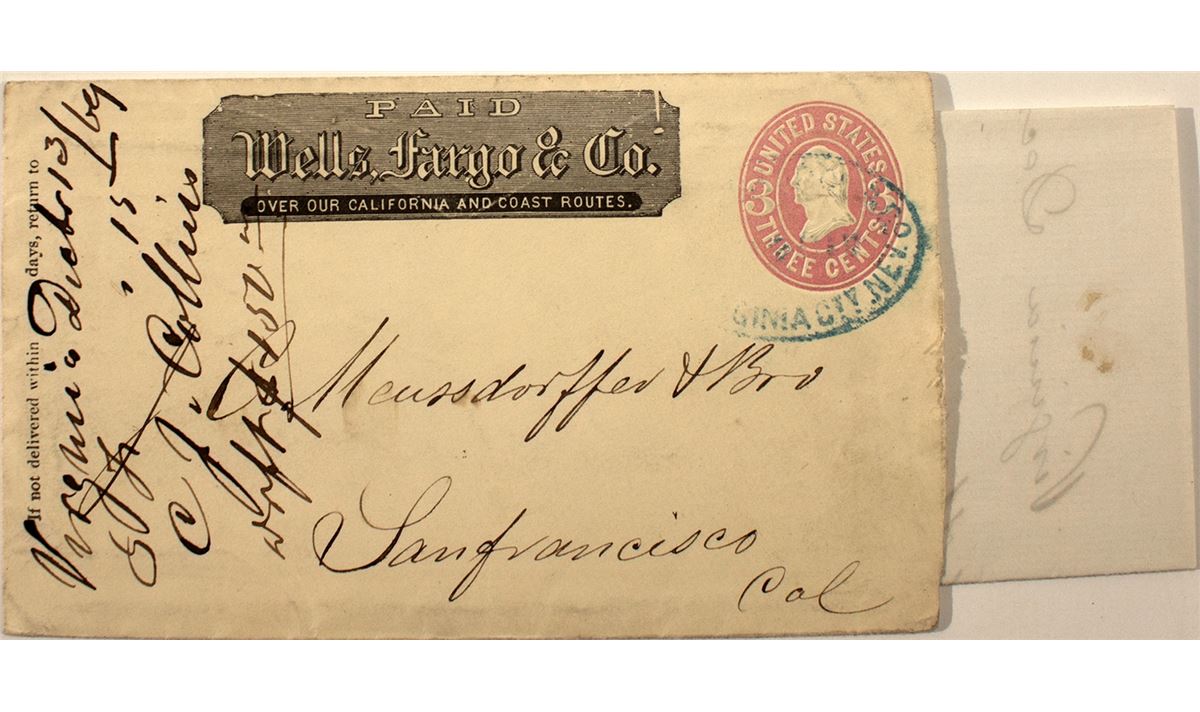 PAID
Wells, Fargo & Co.
OVER OUR CALIFORNIA AND COAST ROUTES.
UNITED STATES
3 3
THREE CENTS
GINIA CITY. NEV.
Meussdorffer & Bro
Sanfrancisco
Cal
If not delivered within days, return to
Virginia Decbr 13/69
" 15
C J. Collins
Virginia Dec